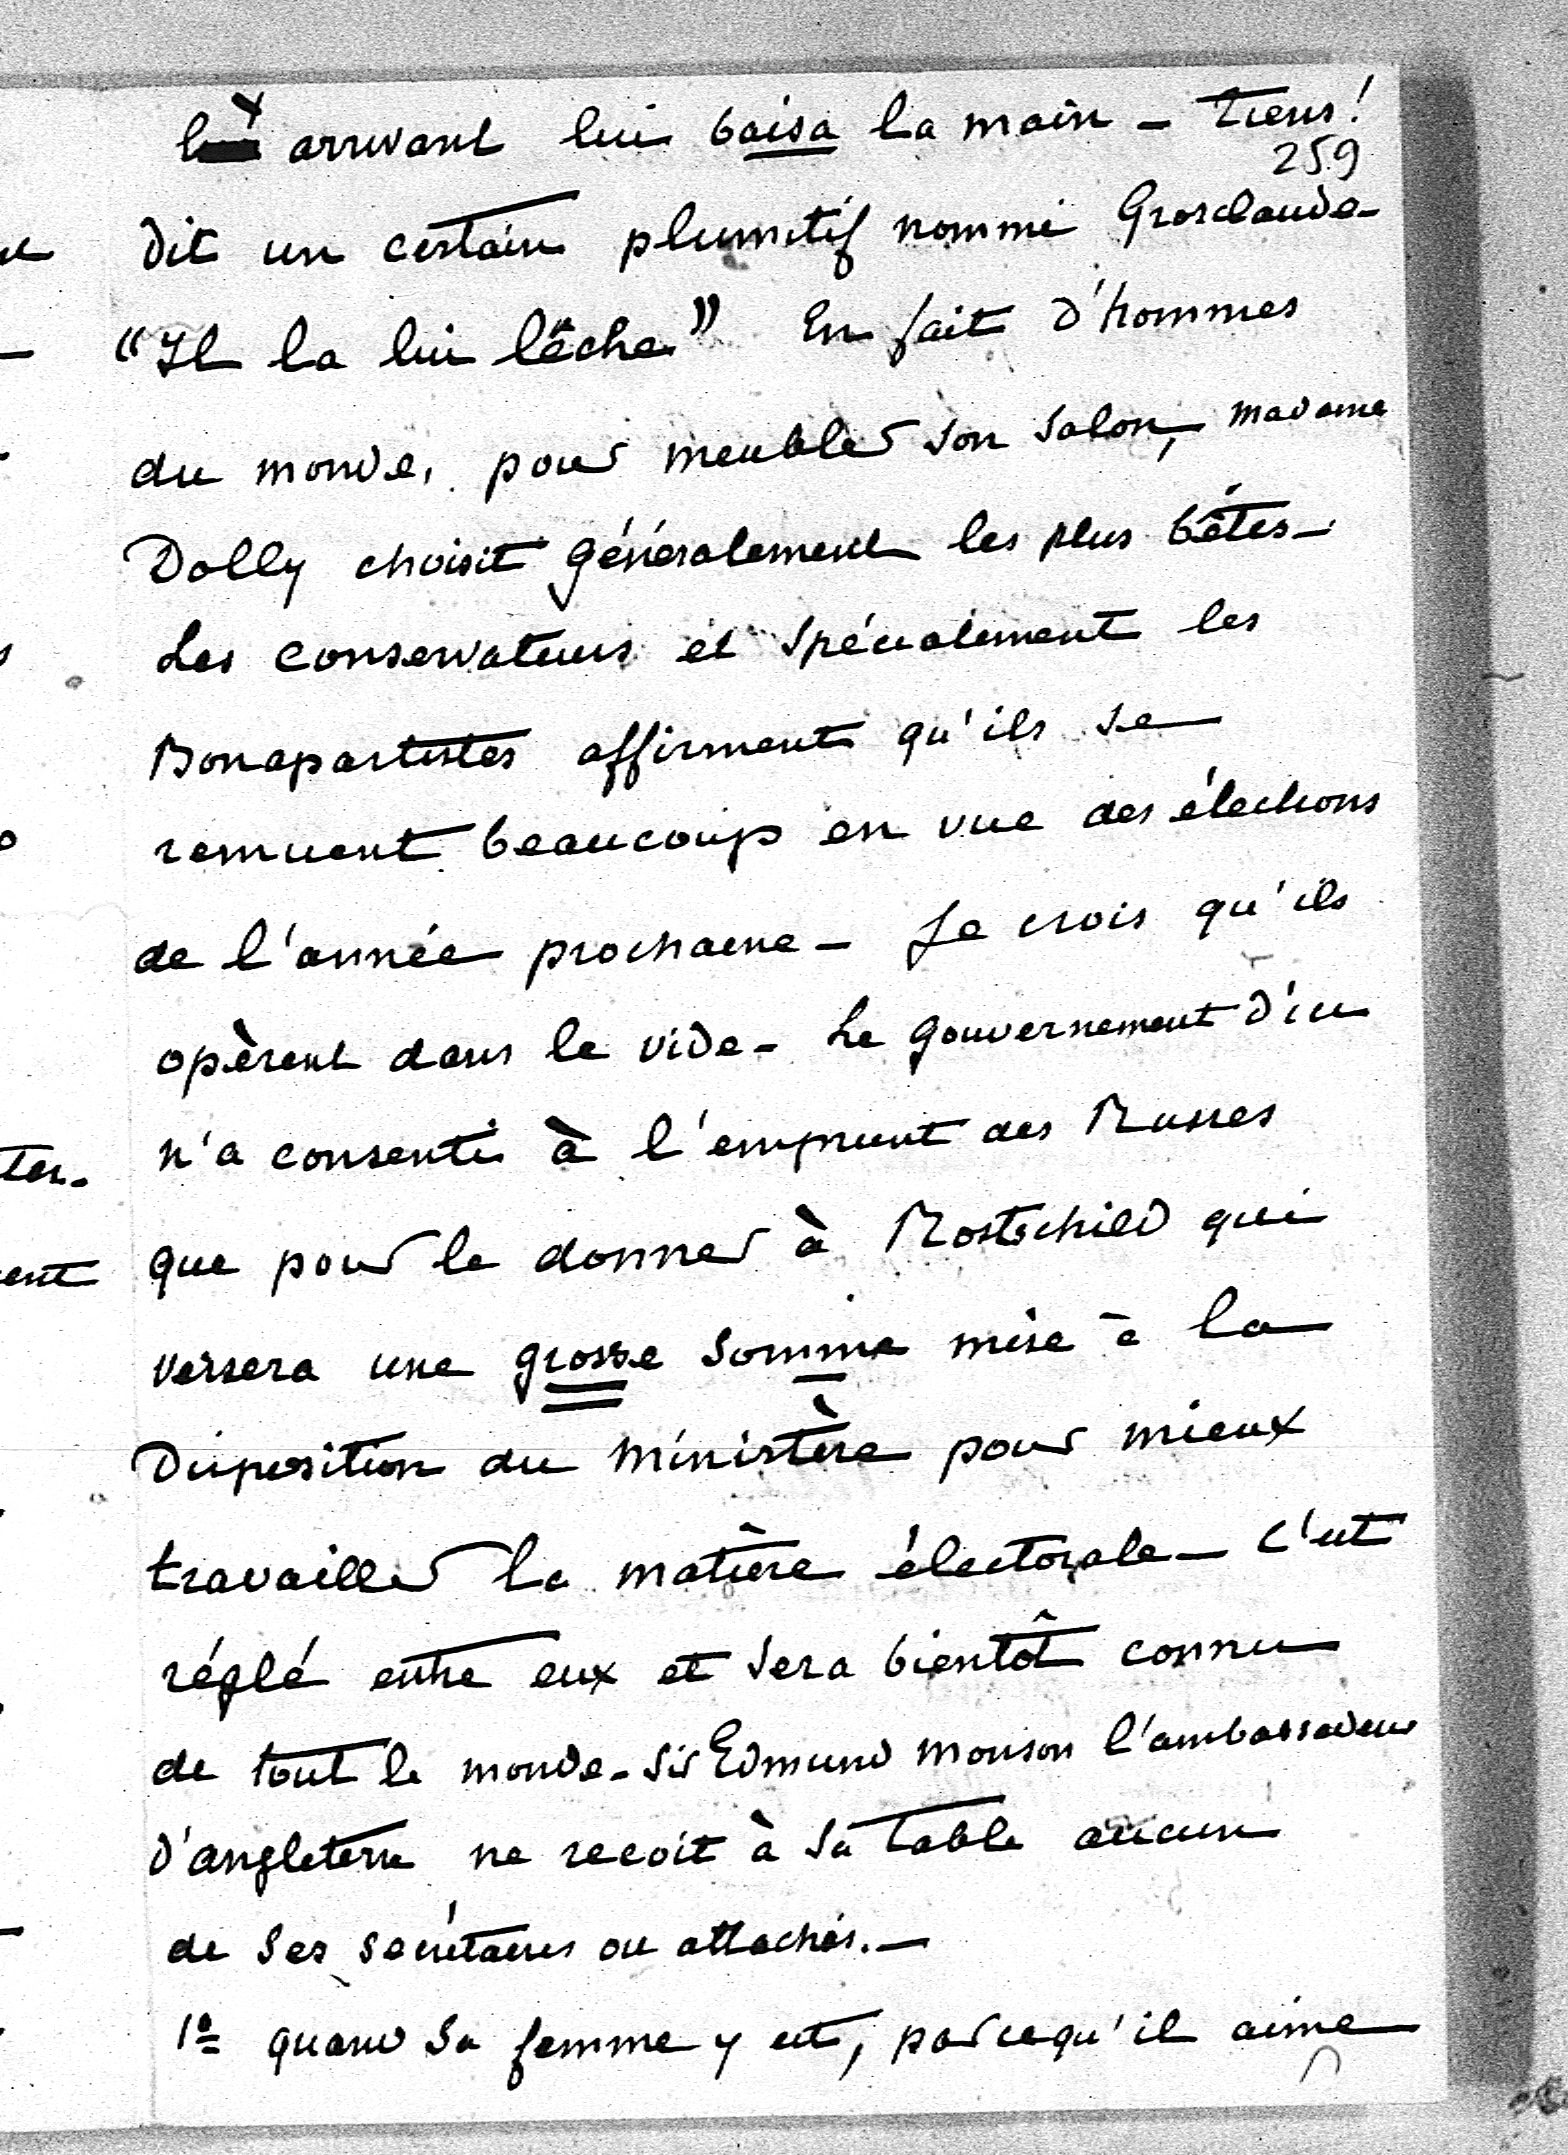 y arrivant lui baisa la main - Tiens!
259
dit un certain plumitif nommé Grosclaude-
"Il la lui lèche" En fait d'hommes
du monde, pour meubler son salon, madame
Dolly choisit généralement les plus bêtes-
Les conservateurs et spécialement les
Bonapartistes affirment qu'ils se
remuent beaucoup en vue des élections
de l'année prochaine - Je crois qu'ils
opèrent dans le vide - Le gouvernement d'ici
n'a consenti à l'emprunt des Russes
que pour le donner à Rostschild qui
versera une grosse somme mise à la
Disposition du Ministère pour mieux
travailler la matière électorale - C'est
réglé entre eux et sera bientôt connu
de tout le monde - Sir Edmund Monson l'ambassadeur
d'angleterre ne recoit à sa table aucun
de ses secrétaires ou attachés. -
1º quand sa femme y est, parcequ'il aime